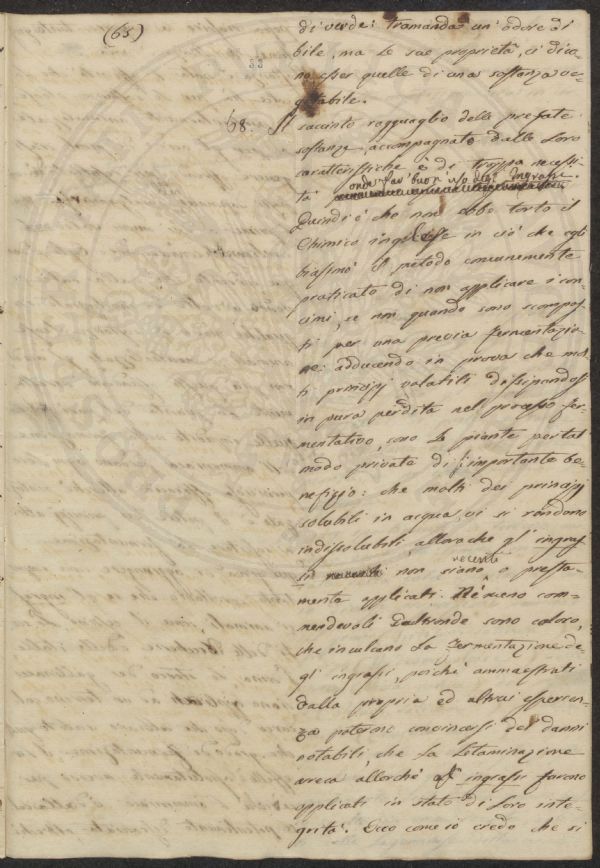 (65)
di verde: tramanda un' odore di
bile, ma le sue proprietà, ci dico-
no esser quelle di una sostanza ve-
getabile.
68. Il raccinto ragguaglio delle prefate
sostanze, accompagnato dalle loro
caratteristiche è di troppa necessi-
tà
onde far buon uso degl' Ingrassi.
Quindi è che non ebbe torto il
Chimico inglese in ciò che egli
biasimò il metodo comunemente
praticato di non applicare i con-
cimi, se non quando sono scompos-
ti per una previa fermentazio-
ne: adducendo in prova che mol-
ti principj volatili dissipandosi
in pura perdita nel processo fer-
mentativo, sono le piante per tal
modo private di importante be-
nefizio: che molti dei principj
solubili in acqua, vi si rendono
indissolubili, allorchè gl' ingras-
si non siano recenti o presta-
mente applicati. Nè meno com-
mendevoli d'altronde sono coloro,
che inculcano la fermentazione de-
gl' ingrassi, poichè ammaestrati
dalla propria ed altrui esperien-
za poterono convincersi dei danni
notabili, che la letaminazione
areca allorchè gl' ingrassi furono
applicati in stato di loro inte-
grità. Ecco come io credo che si